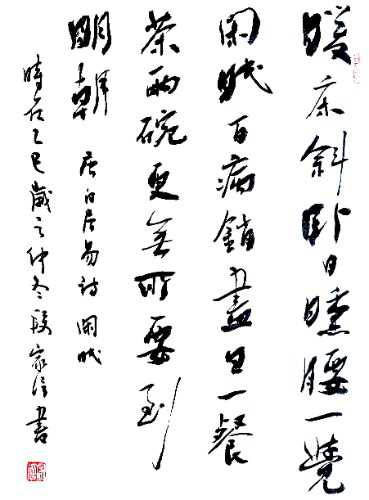 暖床斜卧日曛腰一覺
閑眠百病銷盡日一餐
茶兩碗更無所要到
明朝 唐白居易詩 閑眠
時在乙巳歲之仲冬段家信書